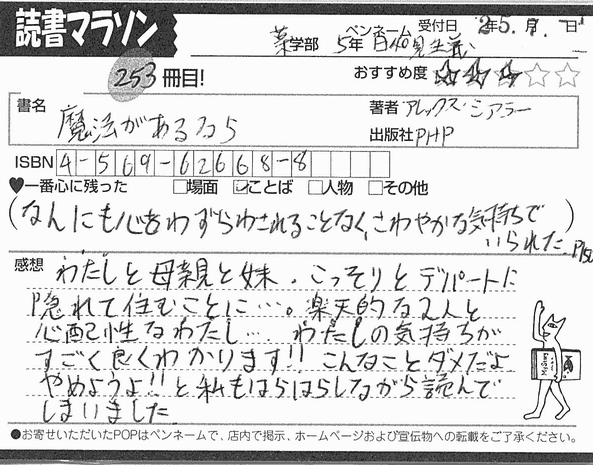 読書マラソン
薬学部 5年 ペンネーム 日和見主義 受付日 25.7. 日
253冊目!
おすすめ度 ★★★☆☆
書名 魔法があるなら
著者 アレックス・シアラー
出版社 PHP
ISBN 4-569-62668-8
♥一番心に残った □場面 ☑ことば □人物 □その他
(なんにも心をわずらわされることなく、さわやかな気持ちで
いられた。)
感想 わたしと母親と妹、こっそりとデパートに
隠れて住むことに…。楽天的な2人と
心配性なわたし… わたしの気持ちが
すごく良くわかります!! こんなことダメだよ
やめようよ!!と私もはらはらしながら読んで
しまいました
●お寄せいただいたPOPはペンネームで、店内で掲示、ホームページおよび宣伝物への転載をご了承ください。